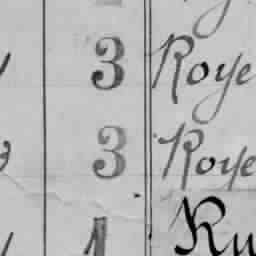 3 Roye
3 Roye
1 Ru